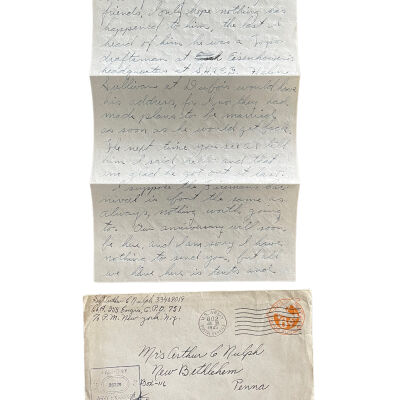 friends, I only hope nothing has
happened to him, the last we
heard of him he was a Topo
draftsman at Eisenhower's
headquarters at S.H.A.E.F. Helen
Sullivan at Dubois would have
his address, for I know they had
made plans to be married
as soon as he would get back.
The next time you see
him I said hello and that
am glad he got out at last.
I suppose the Firemans Car-
nival is about the same as
always, nothing worth going
to. Our anniversary will soon
be here, and I am sorry I have
nothing to send you, but all
we have here is tents and
Arthur C Nulph 33429019
Co A, 208 Engrs. A.P.O. 751
% P.M. New York, N.Y.
U.S. ARMY
Mrs Arthur C Nulph
New Bethlehem
Box-116
Penna